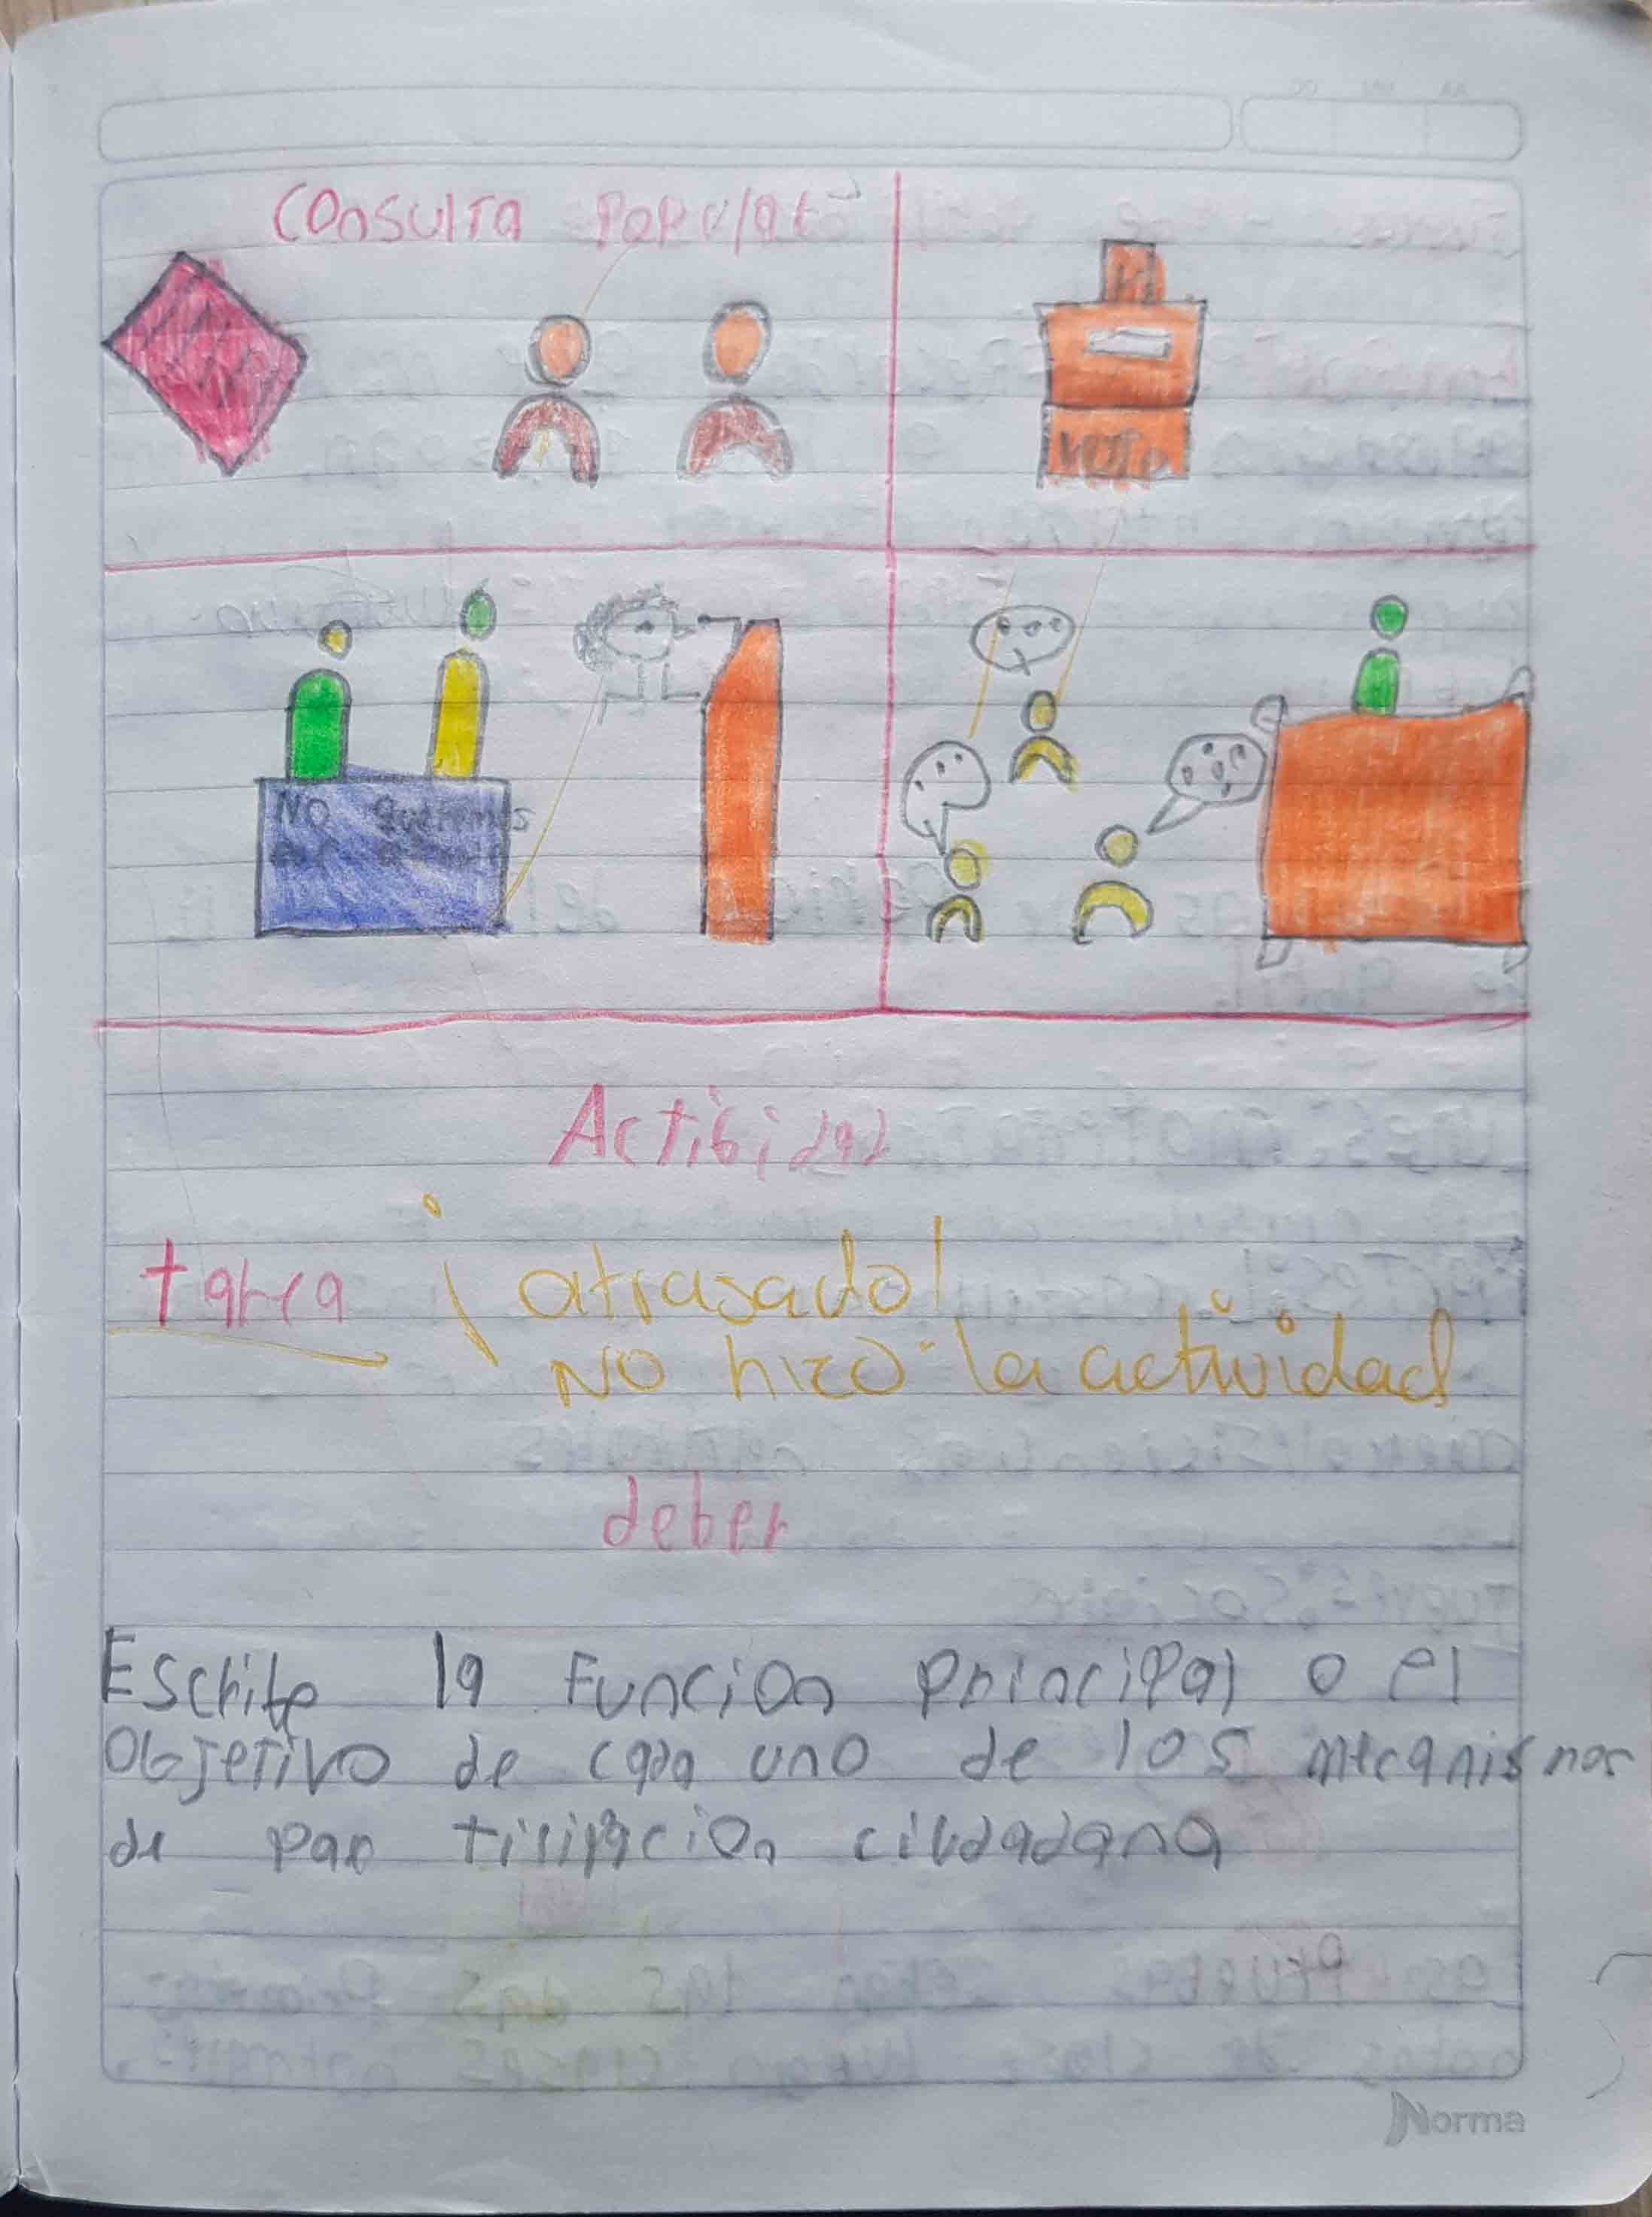 Consulta Popular
Voto
NO queremos
Actibidad
tarea ¡atrasado!
NO hizo la actividad
deber
Escribe la Funcion principal o el
Objetivo de cada uno de los mecanismos
de par ticipacion ciudadana
Norma